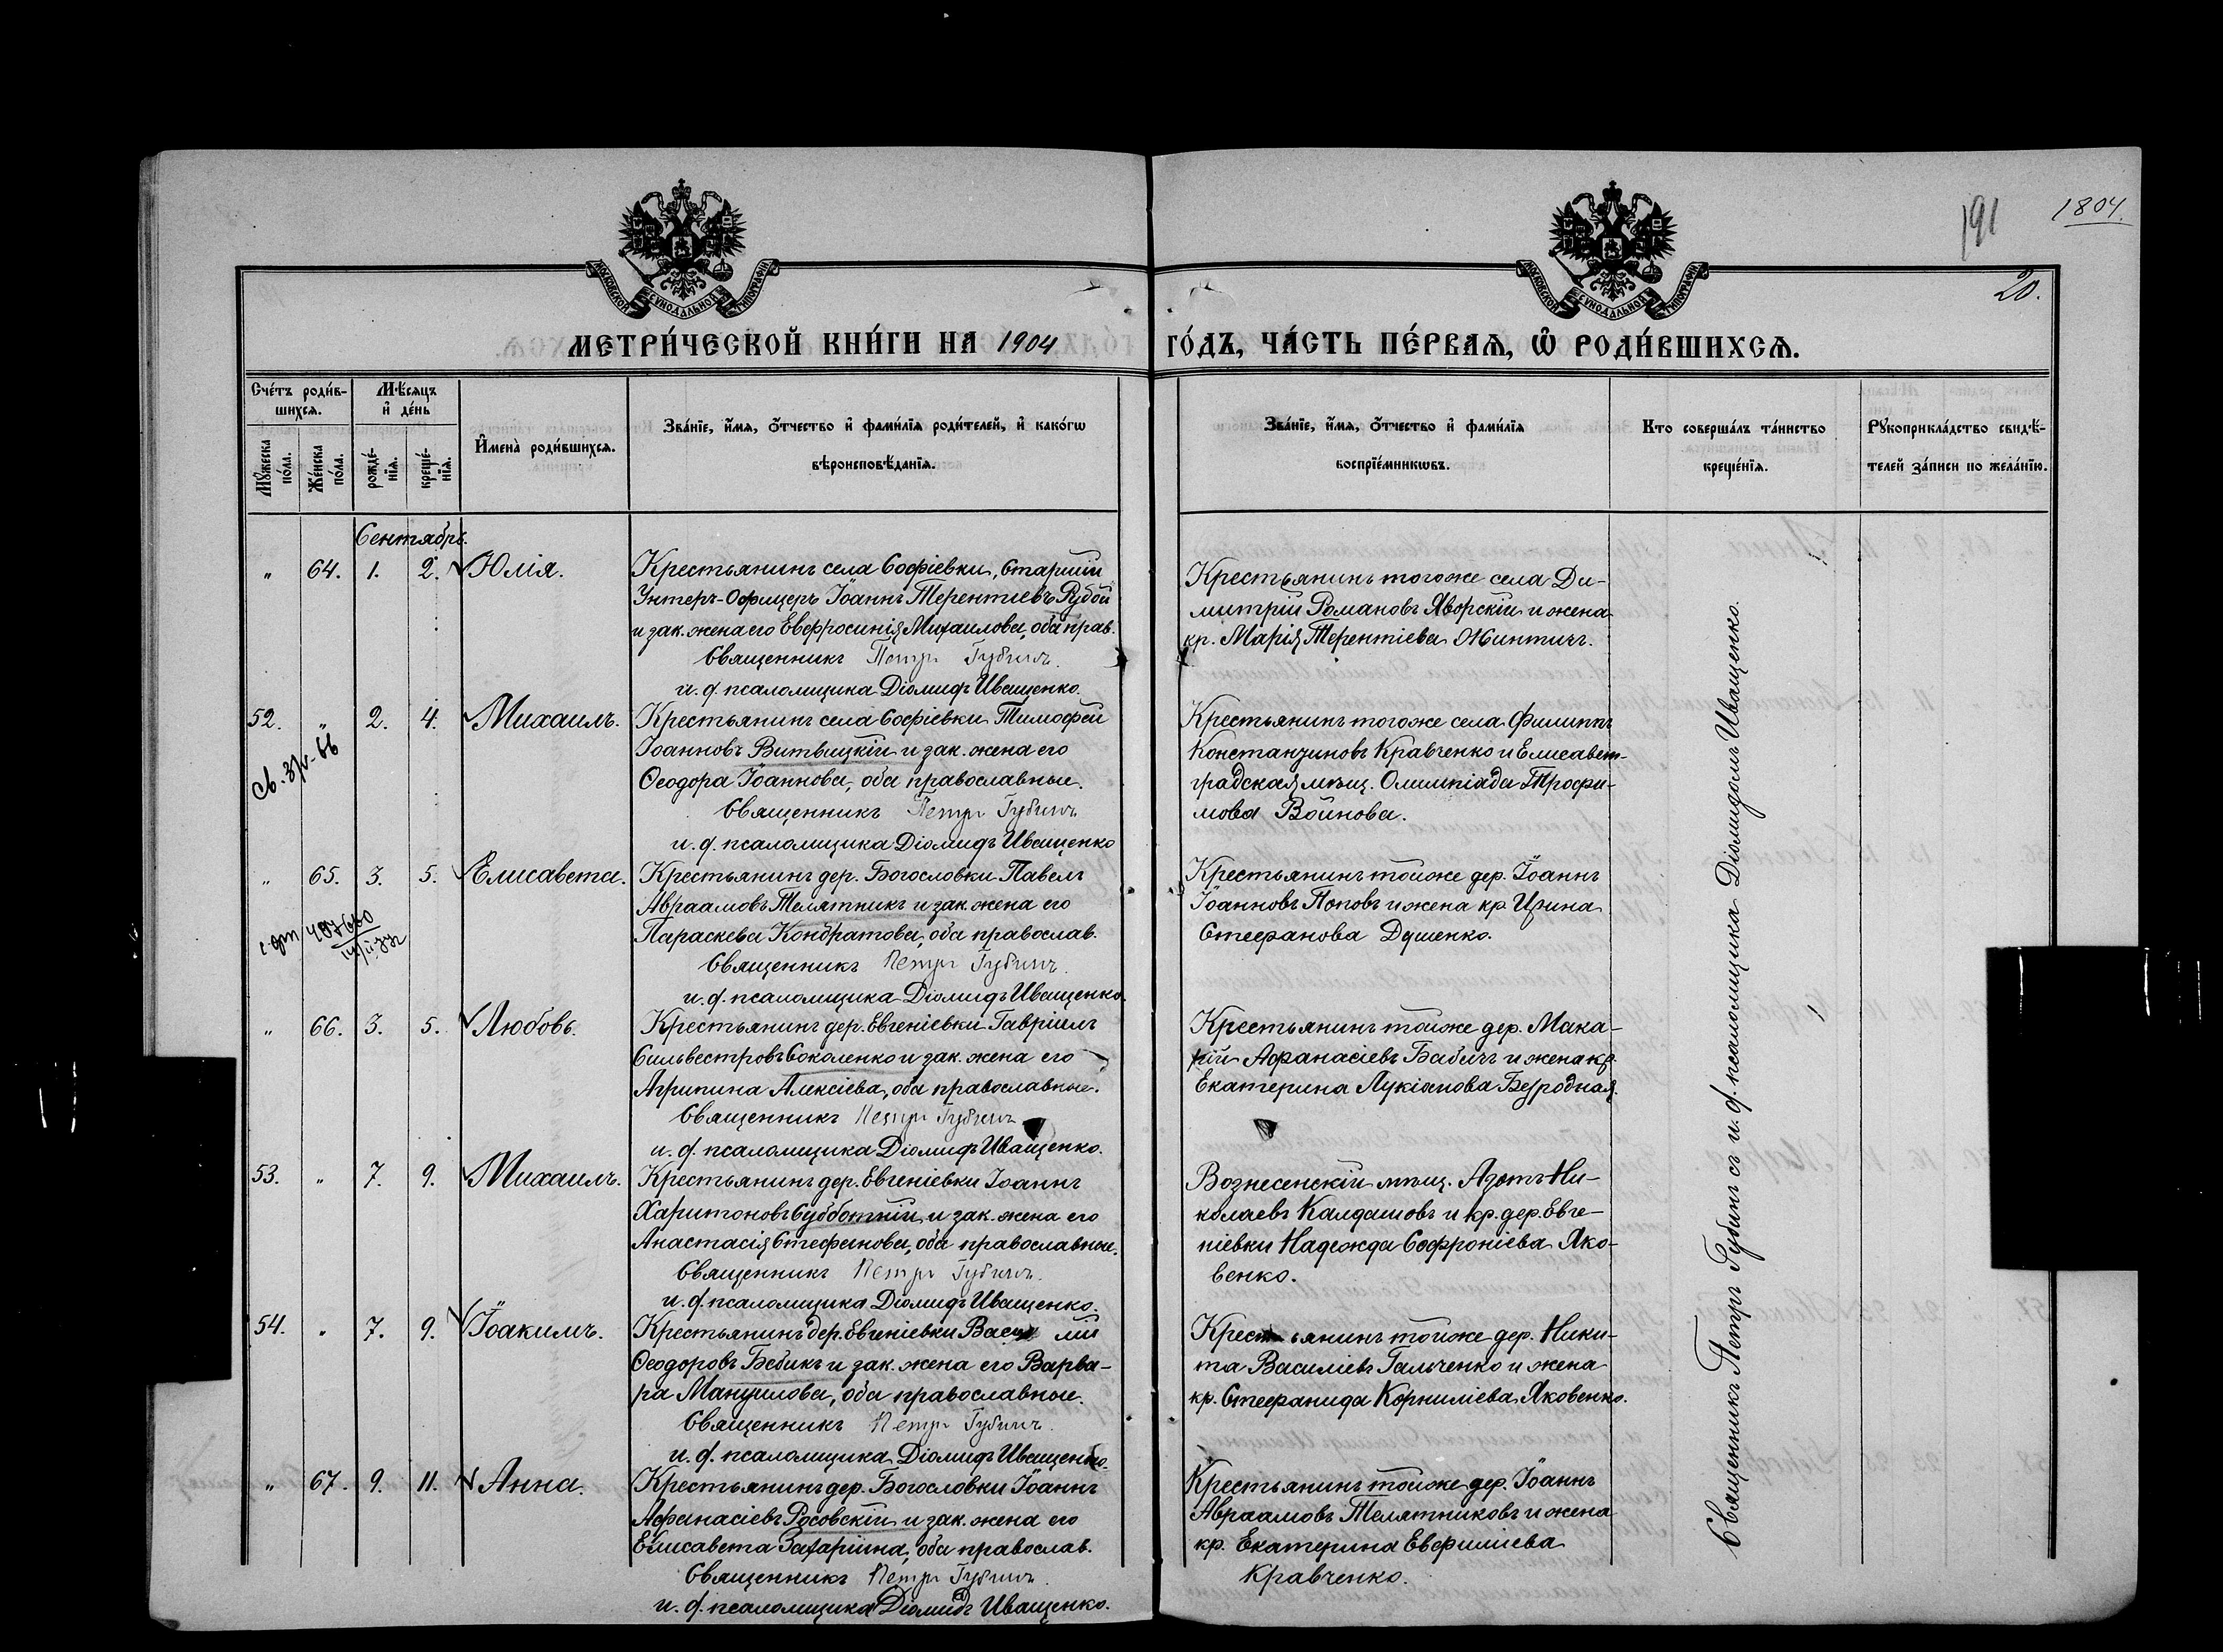 191
1804.
20.
МОСКОВСКОЙ СѴНОДАЛЬНОЙ ТИПОГРАФІИ
МОСКОВСКОЙ СѴНОДАЛЬНОЙ ТИПОГРАФІИ
МЕТРИ́ЧЕСКОЙ КНИ́ГИ НА 1904
ГО́ДЪ, ЧА́СТЬ ПЕ́РВАѦ, Ѽ РОДИ́ВШИХСѦ.
Сче́тъ роди́в-
шихсѧ.
Мѣ́сяцъ
и҆ де́нь
Мꙋ́жеска по́ла.
Же́нска по́ла.
рожде́-
нїѧ.
креще́-
нїѧ.
И҆мена̀ роди́вшихсѧ.
Зва́нїе, и҆́мѧ, ѻ҆́тчество и҆ фами́лїѧ роди́телей, и҆ како́гѡ
вѣроисповѣ́данїѧ.
Зва́нїе, и҆́мѧ, ѻ҆́тчество и҆ фами́лїѧ
воспрїе́мникѡвъ.
Кто соверша́лъ та́инство
креще́нїѧ.
Рꙋкоприкла́дство свидѣ́-
телей за́писи по жела́нїю.
Сентябрь.
" 64. 1. 2. Юлія.
Крестьянинъ села Софіевки, Старшій
Унтеръ-Офицеръ Іоаннъ Терентіевъ Рубой
и зак. жена его Евфросинія Михаилова, оба прав.
Священникъ Петръ Губинъ.
и. д. псаломщика Діомидъ Иващенко.
Крестьянинъ тогоже села Ди-
митрій Романовъ Яворскій и жена
кр. Марія Терентіева Жинтичъ.
52. " 2. 4. Михаилъ.
Крестьянинъ села Софіевки Тимофей
Іоанновъ Витвицкій и зак. жена его
Ѳеодора Іоаннова, оба православные.
Священникъ Петръ Губинъ
и. д. псаломщика Діомидъ Иващенко
Крестьянинъ тогоже села Филиппъ
Константиновъ Кравченко и Елисавет-
градская мѣщ. Олимпіада Трофи-
мова Войнова.
" 65. 3. 5. Елисавета.
Крестьянинъ дер. Богословки Павелъ
Авраамовъ Телятникъ и зак. жена его
Параскева Кондратова, оба православ.
Священникъ Петръ Губинъ.
и. д. псаломщика Діомидъ Иващенко.
Крестьянинъ тойже дер. Іоаннъ
Іоанновъ Поповъ и жена кр Ирина
Стефанова Душенко.
" 66. 3. 5. Любовь.
Крестьянинъ дер. Евгеніевки Гавріилъ
Сильвестровъ Соколенко и зак. жена его
Агрипина Алексіева, оба православные.
Священникъ Петръ Губинъ
и. д. псаломщика Діомидъ Иващенко.
Крестьянинъ тойже дер. Мака-
рій Афанасіевъ Бабичъ и жена кр.
Екатерина Лукіанова Безродная.
53. " 7. 9. Михаилъ.
Крестьянинъ дер. Евгеніевки Іоаннъ
Харитоновъ Субботній и зак. жена его
Анастасія Стефанова, оба православные.
Священникъ Петръ Губинъ.
и. д. псаломщика Діомидъ Иващенко.
Вознесенскій мѣщ. Азотъ Ни-
колаевъ Калдашовъ и кр. дер. Евге-
ніевки Надежда Софроніева Яко-
венко.
54. " 7. 9. Іоакимъ.
Крестьянинъ дер. Евгеніевки Васи лій
Ѳеодоровъ Бебикъ и зак. жена его Варва-
ра Мануилова, оба православные.
Священникъ Петръ Губинъ.
и. д. псаломщика Діомидъ Иващенко.
Крестьянинъ тойже дер. Ники-
та Василіевъ Гальченко и жена
кр. Стефанида Корниліева Яковенко.
" 67. 9. 11. Анна.
Крестьянинъ дер. Богословки Іоаннъ
Афанасіевъ Росовскій и зак. жена его
Елисавета Захаріина, оба православ.
Священникъ Петръ Губинъ.
и. д. псаломщика Діомидъ Иващенко.
Крестьянинъ тойже дер. Іоаннъ
Авраамовъ Телятниковъ и жена
кр. Екатерина Евфиміева
Кравченко.
Священникъ Петръ Губинъ съ и. д. псаломщика Діомидомъ Иващенко.